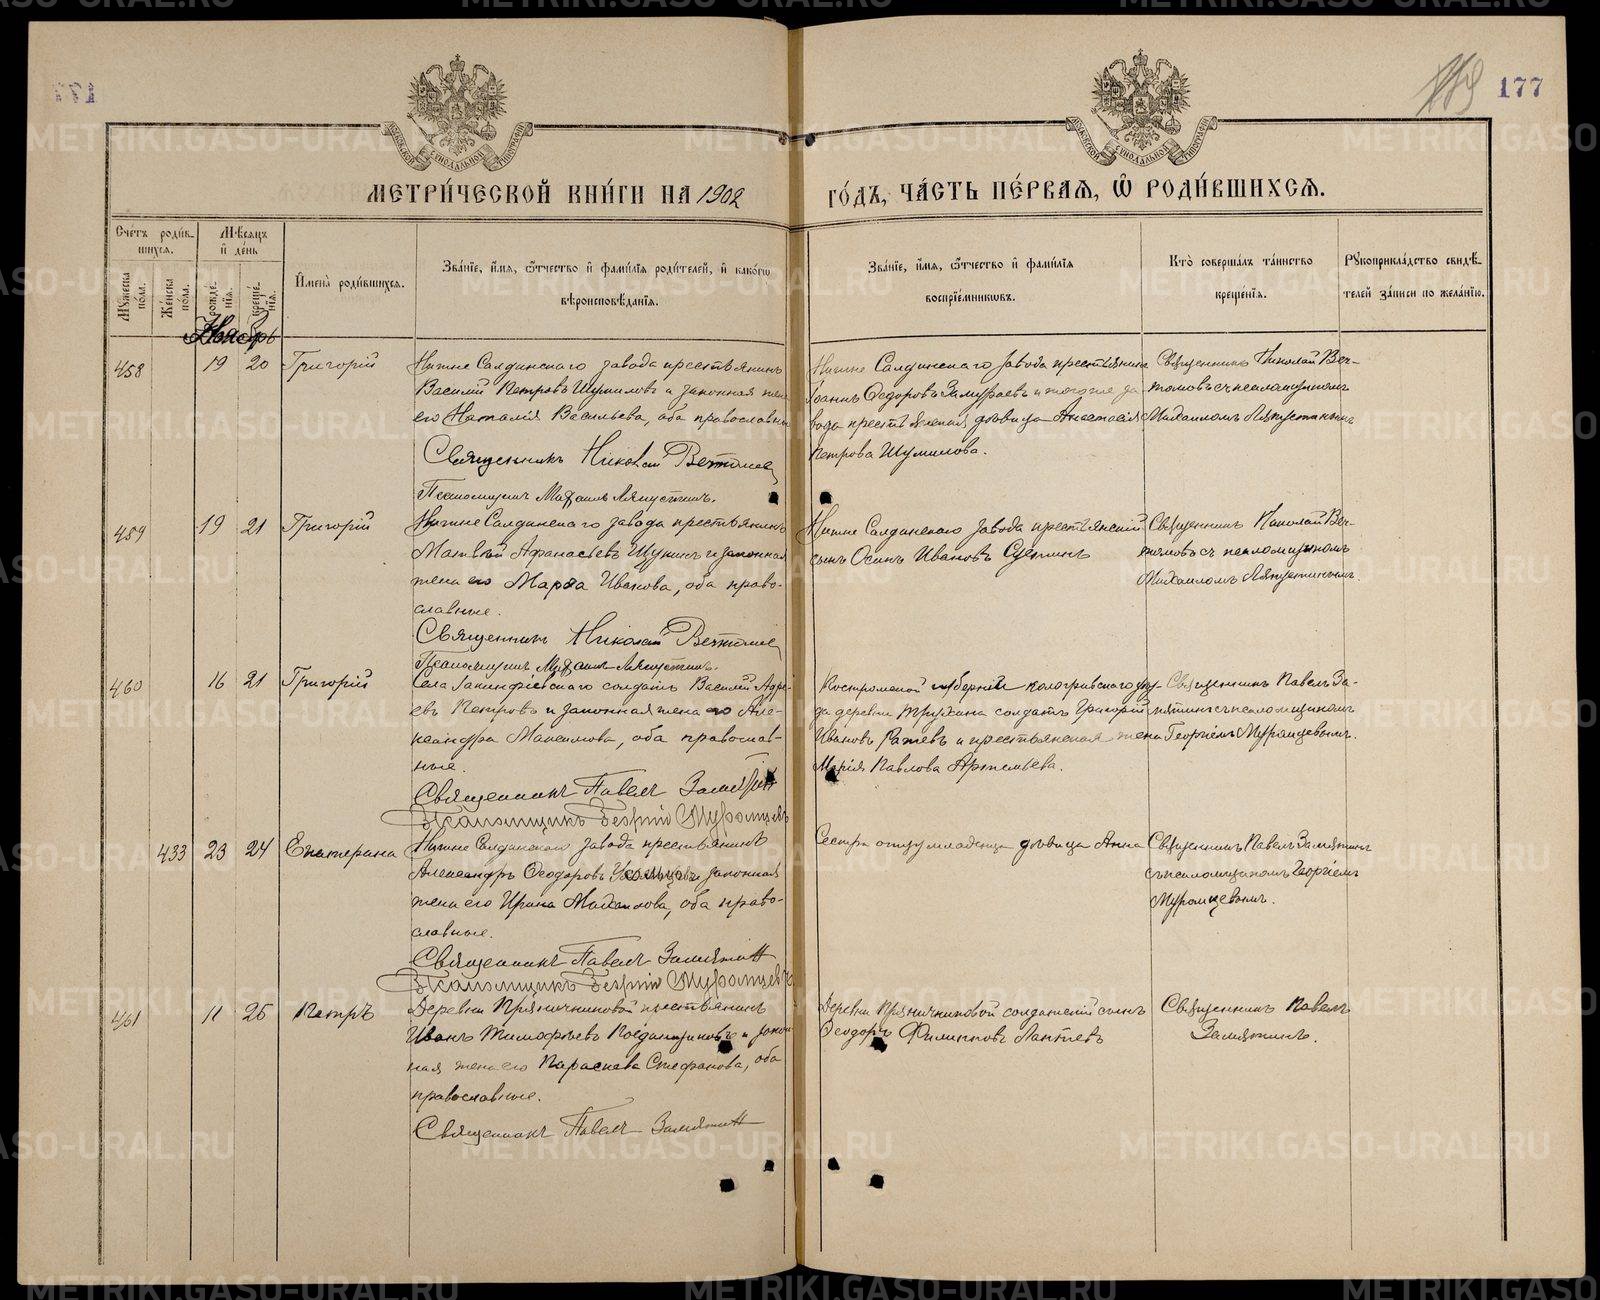 177
177
МОСКОВСКОЙ СѴНОДАЛЬНОЙ ТИПОГРАФІИ
МОСКОВСКОЙ СѴНОДАЛЬНОЙ ТИПОГРАФІИ
МЕТРИ́ЧЕСКОЙ КНИ́ГИ НА 1902
ГО́ДЪ, ЧА́СТЬ ПЕ́РВАѦ, Ѿ РОДИ́ВШИХСѦ.
Сче́тъ роди́в-
шихсѧ.
Мꙋ́жеска по́ла.
Же́нска по́ла.
Мѣ́сѧцъ
и҆ де́нь
рожде́нїѧ.
креще́нїѧ.
И҆мена̀ роди́вшихсѧ.
Зва́нїе, и҆́мѧ, ѻ҆́тчество и҆ фами́лїѧ роди́телей, и҆ како́гѡ
вѣроисповѣ́данїѧ.
Зва́нїе, и҆́мѧ, ѻ҆́тчество и҆ фами́лїѧ
воспрїе́мникѡвъ.
Кто̀ соверша́лъ та́инство
креще́нїѧ.
Рꙋкоприкла́дство свидѣ́-
телей за́писи по жела́нїю.
Ноябрь
458
19
20
Григорій
Нижне Салдинскаго завода крестьянинъ
Василій Петровъ Шумиловъ и законная жена
его Наталія Васильева, оба православные
Священникъ Николай
Псаломщикъ Михаилъ Ляпустинъ.
Нижне Салдинскаго завода крестьянинъ
Іоаннъ Ѳедоровъ Замураевъ и тогоже за
вода крестьянская дѣвица Анастасія
Петрова Шумилова.
Священникъ Николай
съ псаломщикомъ
Михаиломъ Ляпустинымъ
459
19
21
Григорій
Нижне Салдинскаго завода крестьянинъ
Матвѣй Афанасьевъ Щукинъ и законная
жена его Марѳа Иванова, оба право-
славные.
Священникъ Николай
Псаломщикъ Михаилъ Ляпустинъ.
Нижне Салдинскаго завода крестьянскій
сынъ Осипъ Ивановъ
Священникъ Николай
съ псаломщикомъ
Михаиломъ Ляпустинымъ.
460
16
21
Григорій
Села солдатъ Василій
евъ Петровъ и законная жена его Але-
ксандра Максимова, оба православ-
ные.
Священникъ Павелъ Замятин
Псаломщикъ Георгій Муромцевъ
Костромской губерніи кологривскаго уѣз-
да деревни солдатъ Григорій
Ивановъ и крестьянская жена
Марія Павлова Артемьева.
Священникъ Павелъ За-
мятинъ съ псаломщикомъ
Георгіемъ Муромцевымъ.
433
23
24
Екатерина
Нижне Салдинскаго завода крестьянинъ
Александръ Ѳеодоровъ и законная
жена его Ирина Михаилова, оба право-
славные.
Священникъ Павелъ Замятин
Псаломщикъ Георгій Муромцевъ
Сестра отцу младенца дѣвица Анна
Священникъ Павелъ Замятинъ
съ псаломщикомъ Георгіемъ
Муромцевымъ.
461
11
25
Петръ
Деревни Пряничниковой крестьянинъ
Иванъ Тимофѣевъ и закон
ная жена его Параскева Стефанова, оба
православные.
Священникъ Павелъ Замятин
Деревни Пряничниковой солдатскій сынъ
Ѳеодоръ Филипповъ Лаптевъ
Священникъ Павелъ
Замятинъ.
METRIKI.GASO-URAL.RU